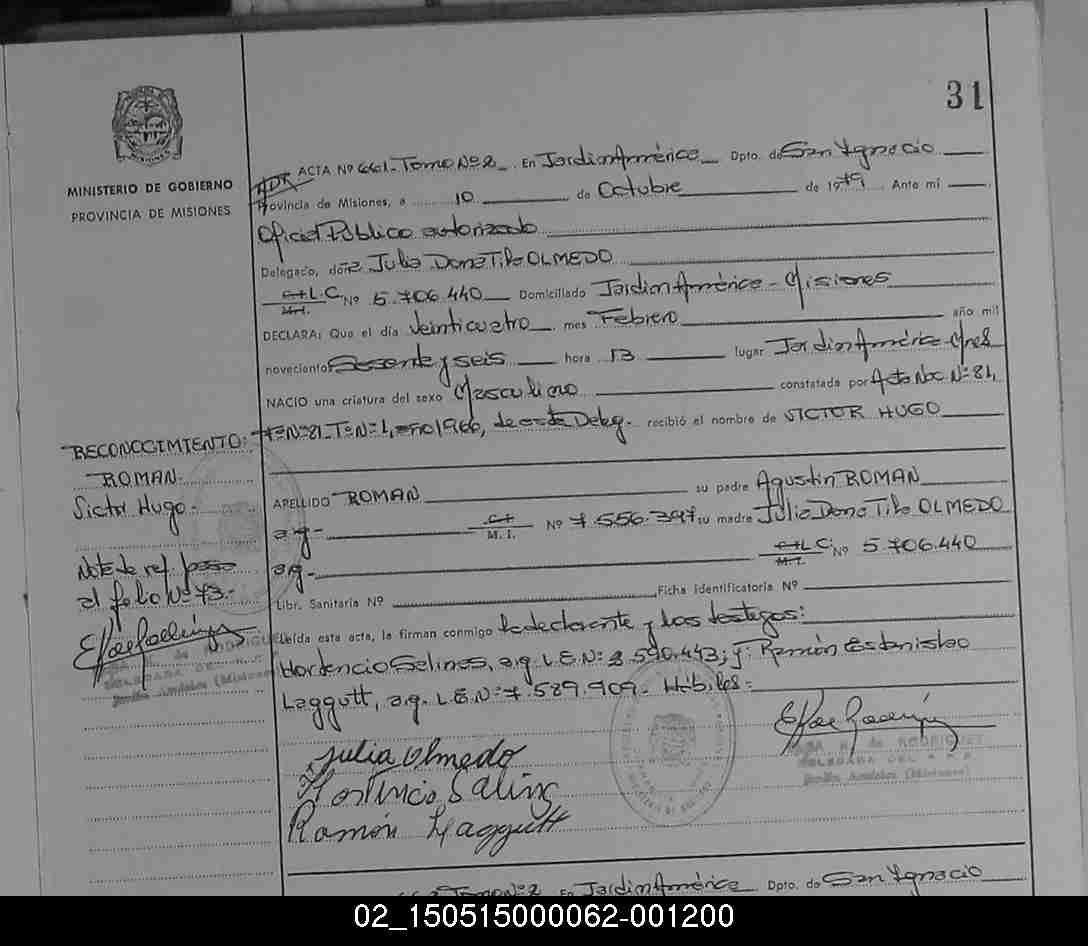 31
MINISTERIO DE GOBIERNO
PROVINCIA DE MISIONES
ACTA Nº 661 - Tomo Nº 2 En Jardín América Dpto. de San Ygnacio
Provincia de Misiones, a 10 de Octubre de 1979 Ante mí
Oficial Público autorizado
Delegado, doña Julia Dona Tila OLMEDO
C.I. L.C. Nº 5.706.440 Domiciliado Jardín América - Misiones
M.I.
DECLARA: Que el día Veinticuatro mes Febrero año mil
novecientos Sesenta y seis hora 13 lugar Jardín América - Mnes
NACIO una criatura del sexo Masculino constatada por Acta Nac. Nº 81,
Fº Nº 81 - Tº Nº 1, año 1966, de esta Deleg. recibió el nombre de VICTOR HUGO
RECONOCIMIENTO:
ROMAN
Victor Hugo.-
Nota de ref. pasa
al folio Nº 73.-
APELLIDO ROMAN su padre Agustín ROMAN
arg.- C.I. Nº 7.556.397 su madre Julia Dona Tila OLMEDO
M.I.
arg.- C.I. L.C. Nº 5.706.440
M.I.
Libr. Sanitaria Nº Ficha Identificatoria Nº
Leída esta acta, la firman conmigo la declarante y los testigos:
Hortencio Salinas, arg. L.E. Nº: 3.590.443; y: Ramón Estanislao
Laggutt, arg. L.E. Nº: 7.589.909 - Hábiles.-
DE RODRIGUEZ
DELEGADA DEL R.P.
Jardín América (Misiones)
Julia Olmedo
Hortencio Salinas
Ramón Laggutt
Tomo Nº 2 En Jardín América Dpto. de San Ygnacio
02_150515000062-001200